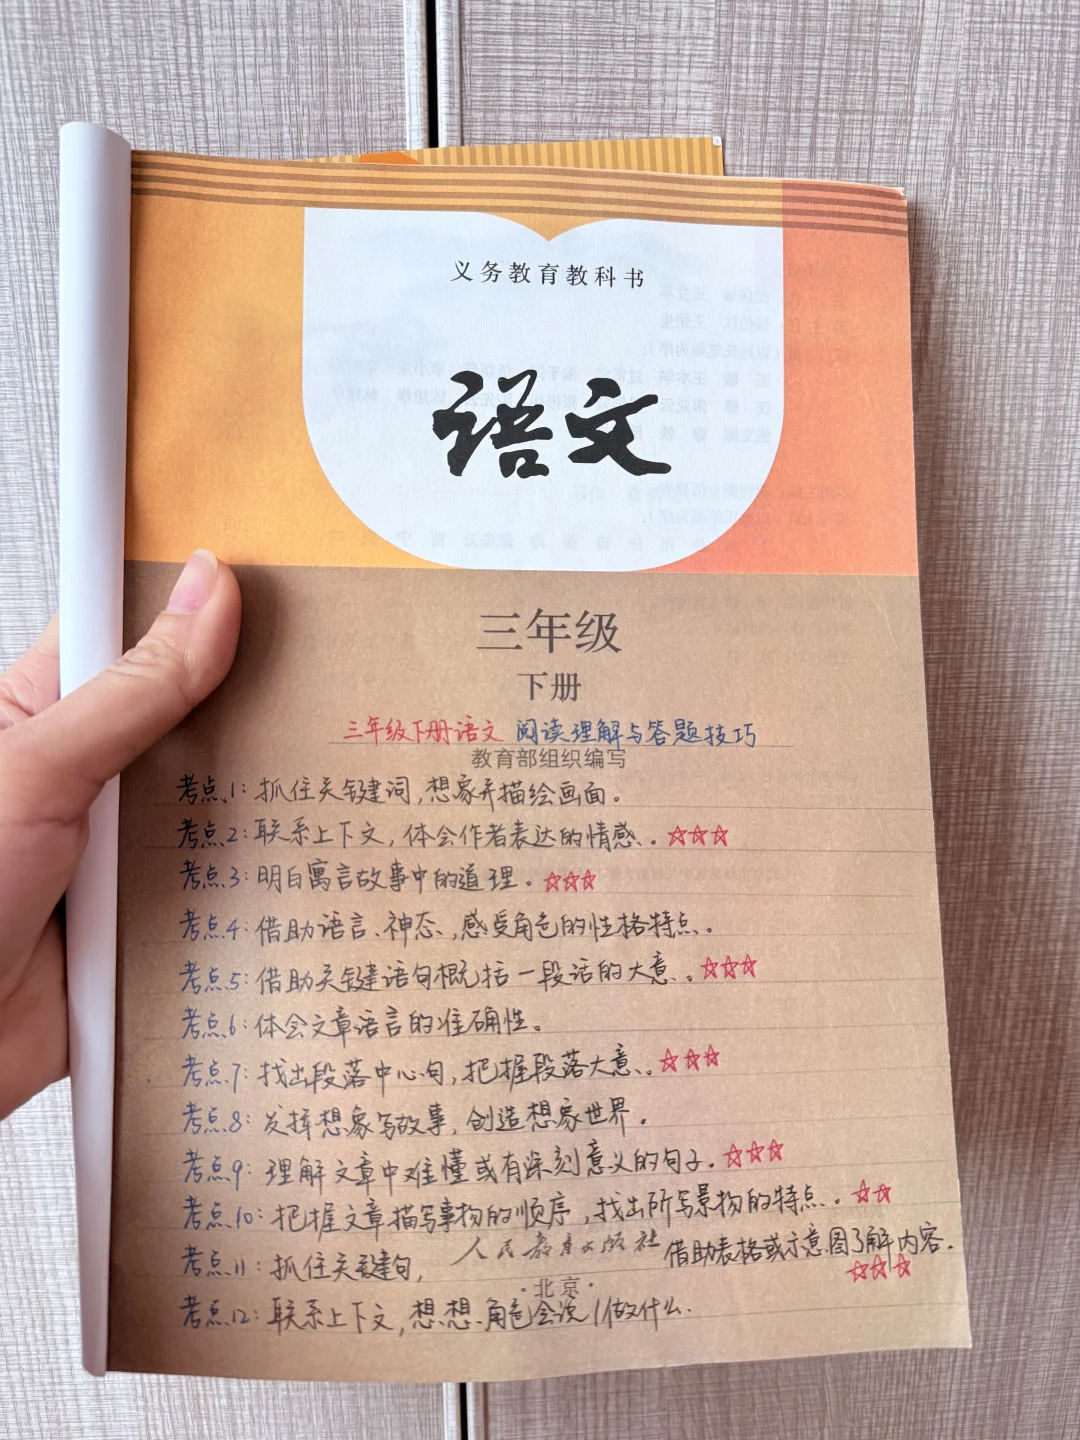 义务教育教科书
语文
三年级
下册
三年级下册语文 阅读理解与答题技巧
教育部组织编写
考点1：抓住关键词，想象并描绘画面。
考点2：联系上下文，体会作者表达的情感。☆☆☆
考点3：明白寓言故事中的道理。☆☆☆
考点4：借助语言、神态，感受角色的性格特点。
考点5：借助关键语句概括一段话的大意。☆☆☆
考点6：体会文章语言的准确性。
考点7：找出段落中心句，把握段落大意。☆☆☆
考点8：发挥想象写故事，创造想象世界。
考点9：理解文章中难懂或有深刻意义的句子。☆☆☆
考点10：把握文章描写事物的顺序，找出所写景物的特点。☆☆
人民教育出版社
考点11：抓住关键句，借助表格或示意图了解内容。☆☆☆
·北京·
考点12：联系上下文，想想角色会说/做什么.